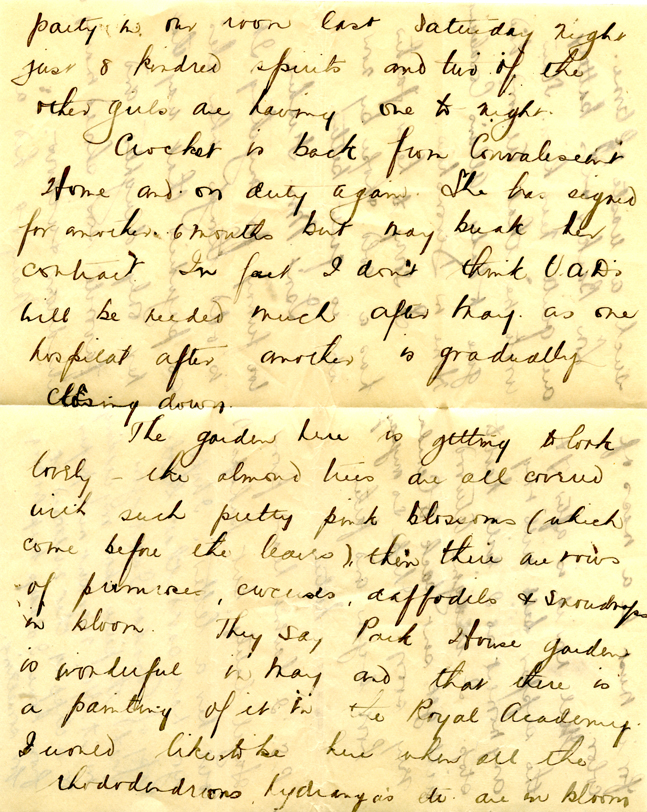 party in our room last Saturday night
just 8 kindred spirits and two of the
other girls are having one to night.
Crocket is back from Convalescent
Home and on duty again. She has signed
for another 6 months but may break her
contract. In fact I don't think V.A.D's
will be needed much after May. as one
hospital after another is gradually
closing down.
The garden here is getting to look
lovely – the almond trees are all covered
with such pretty pink blossoms (which
come before the leaves), then there are rows
of primroses, crocuses, daffodils & snowdrops
in bloom. They say Park House garden
is wonderful in May and that there is
a painting of it in the Royal Academy.
I would like to be here when all the
rhododendrons, hydrangas etc. are in bloom